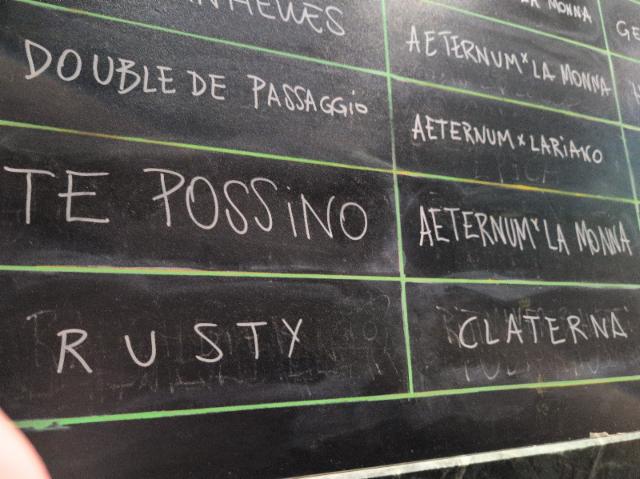 LA MONNA
GE
AETERNUM x LA MONNA
DOUBLE DE PASSAGGiO
AETERNUM x LARiANO
TE POSSiNO
AETERNUM x LA MONNA
RUSTY
CLATERNA